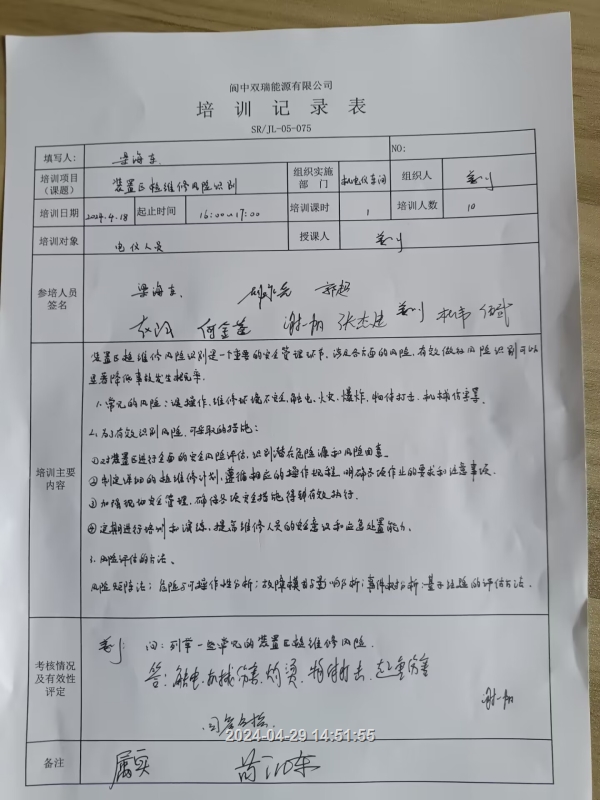 阆中双瑞能源有限公司
培训记录表
SR/JL-05-075
填写人： 梁海东 NO:
培训项目（课题） 装置区检维修风险识别 组织实施部门 机电仪车间 组织人
培训日期 2024.4.18 起止时间 16:00~17:00 培训课时 1 培训人数 10
培训对象 电仪人员 授课人
参培人员签名 梁海东 郭超
何金莲 谢翔 张杰建 杜韦 任武
培训主要内容
装置区检维修风险识别是一个重要的安全管理环节，涉及各方面的风险，有效做好风险识别可以
显著降低事故发生概率。
1.常见的风险：误操作、维修环境不安全、触电、火灾、爆炸、物体打击、机械伤害等
2.为有效识别风险，可采取的措施：
①对装置区进行全面的安全风险评估，识别潜在危险源和风险因素。
②制定详细的检维修计划，遵循相应的操作规程，明确各项作业的要求和注意事项。
③加强现场安全管理，确保各项安全措施得到有效执行。
④定期进行培训和演练，提高维修人员的安全意识和应急处置能力。
3.风险评估的方法、
风险矩阵法；危险与可操作性分析；故障模式与影响分析；事件树分析；基于经验的评估方法。
考核情况及有效性评定
问：列举一些常见的装置区检维修风险.
答：触电.机械伤害.灼烫.物体打击.起重伤害
谢翔
回答合格
2024-04-29 14:51:55
备注 属实